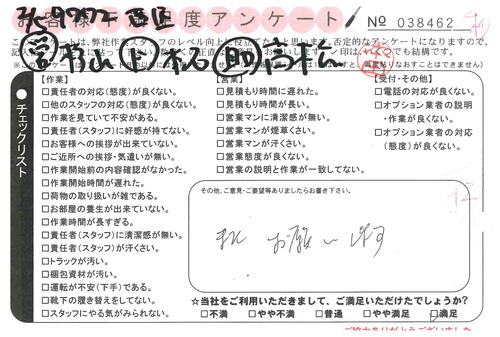 お客様満足度アンケート
№ 038462
【作業】
□責任者の対応(態度)が良くない。
□他のスタッフの対応(態度)が良くない。
□作業を見ていて不安がある。
□責任者(スタッフ)に好感が持てない。
□お客様への挨拶が出来ていない。
□ご近所への挨拶・気遣いが無い。
□作業開始前の内容確認がなかった。
□作業開始時間が遅れた。
□荷物の取り扱いが雑である。
□お部屋の養生が出来ていない。
□作業時間が長すぎる。
□責任者(スタッフ)に清潔感が無い。
□責任者(スタッフ)が汗くさい。
□トラックが汚い。
□梱包資材が汚い。
□運転が不安(下手)である。
□靴下の履き替えをしてない。
□スタッフにやる気がみられない。
チェックリスト
【営業】
□見積もり時間に遅れた。
□見積もり時間が長い。
□営業マンに清潔感が無い。
□営業マンが煙草くさい。
□営業マンが汗くさい。
□営業態度が良くない。
□営業の説明と作業が一致してない。
【受付・その他】
□電話の対応が良くない。
□オプション業者の説明
・作業が良くない。
□オプション業者の対応
(態度)が良くない。
その他、ご意見・ご要望等ありましたらお書き下さい。
又 お願いします
☆当社をご利用いただきまして、ご満足いただけたでしょうか?
□不満 □やや不満 □普通 □やや満足 □満足
ご協力ありがとうございました